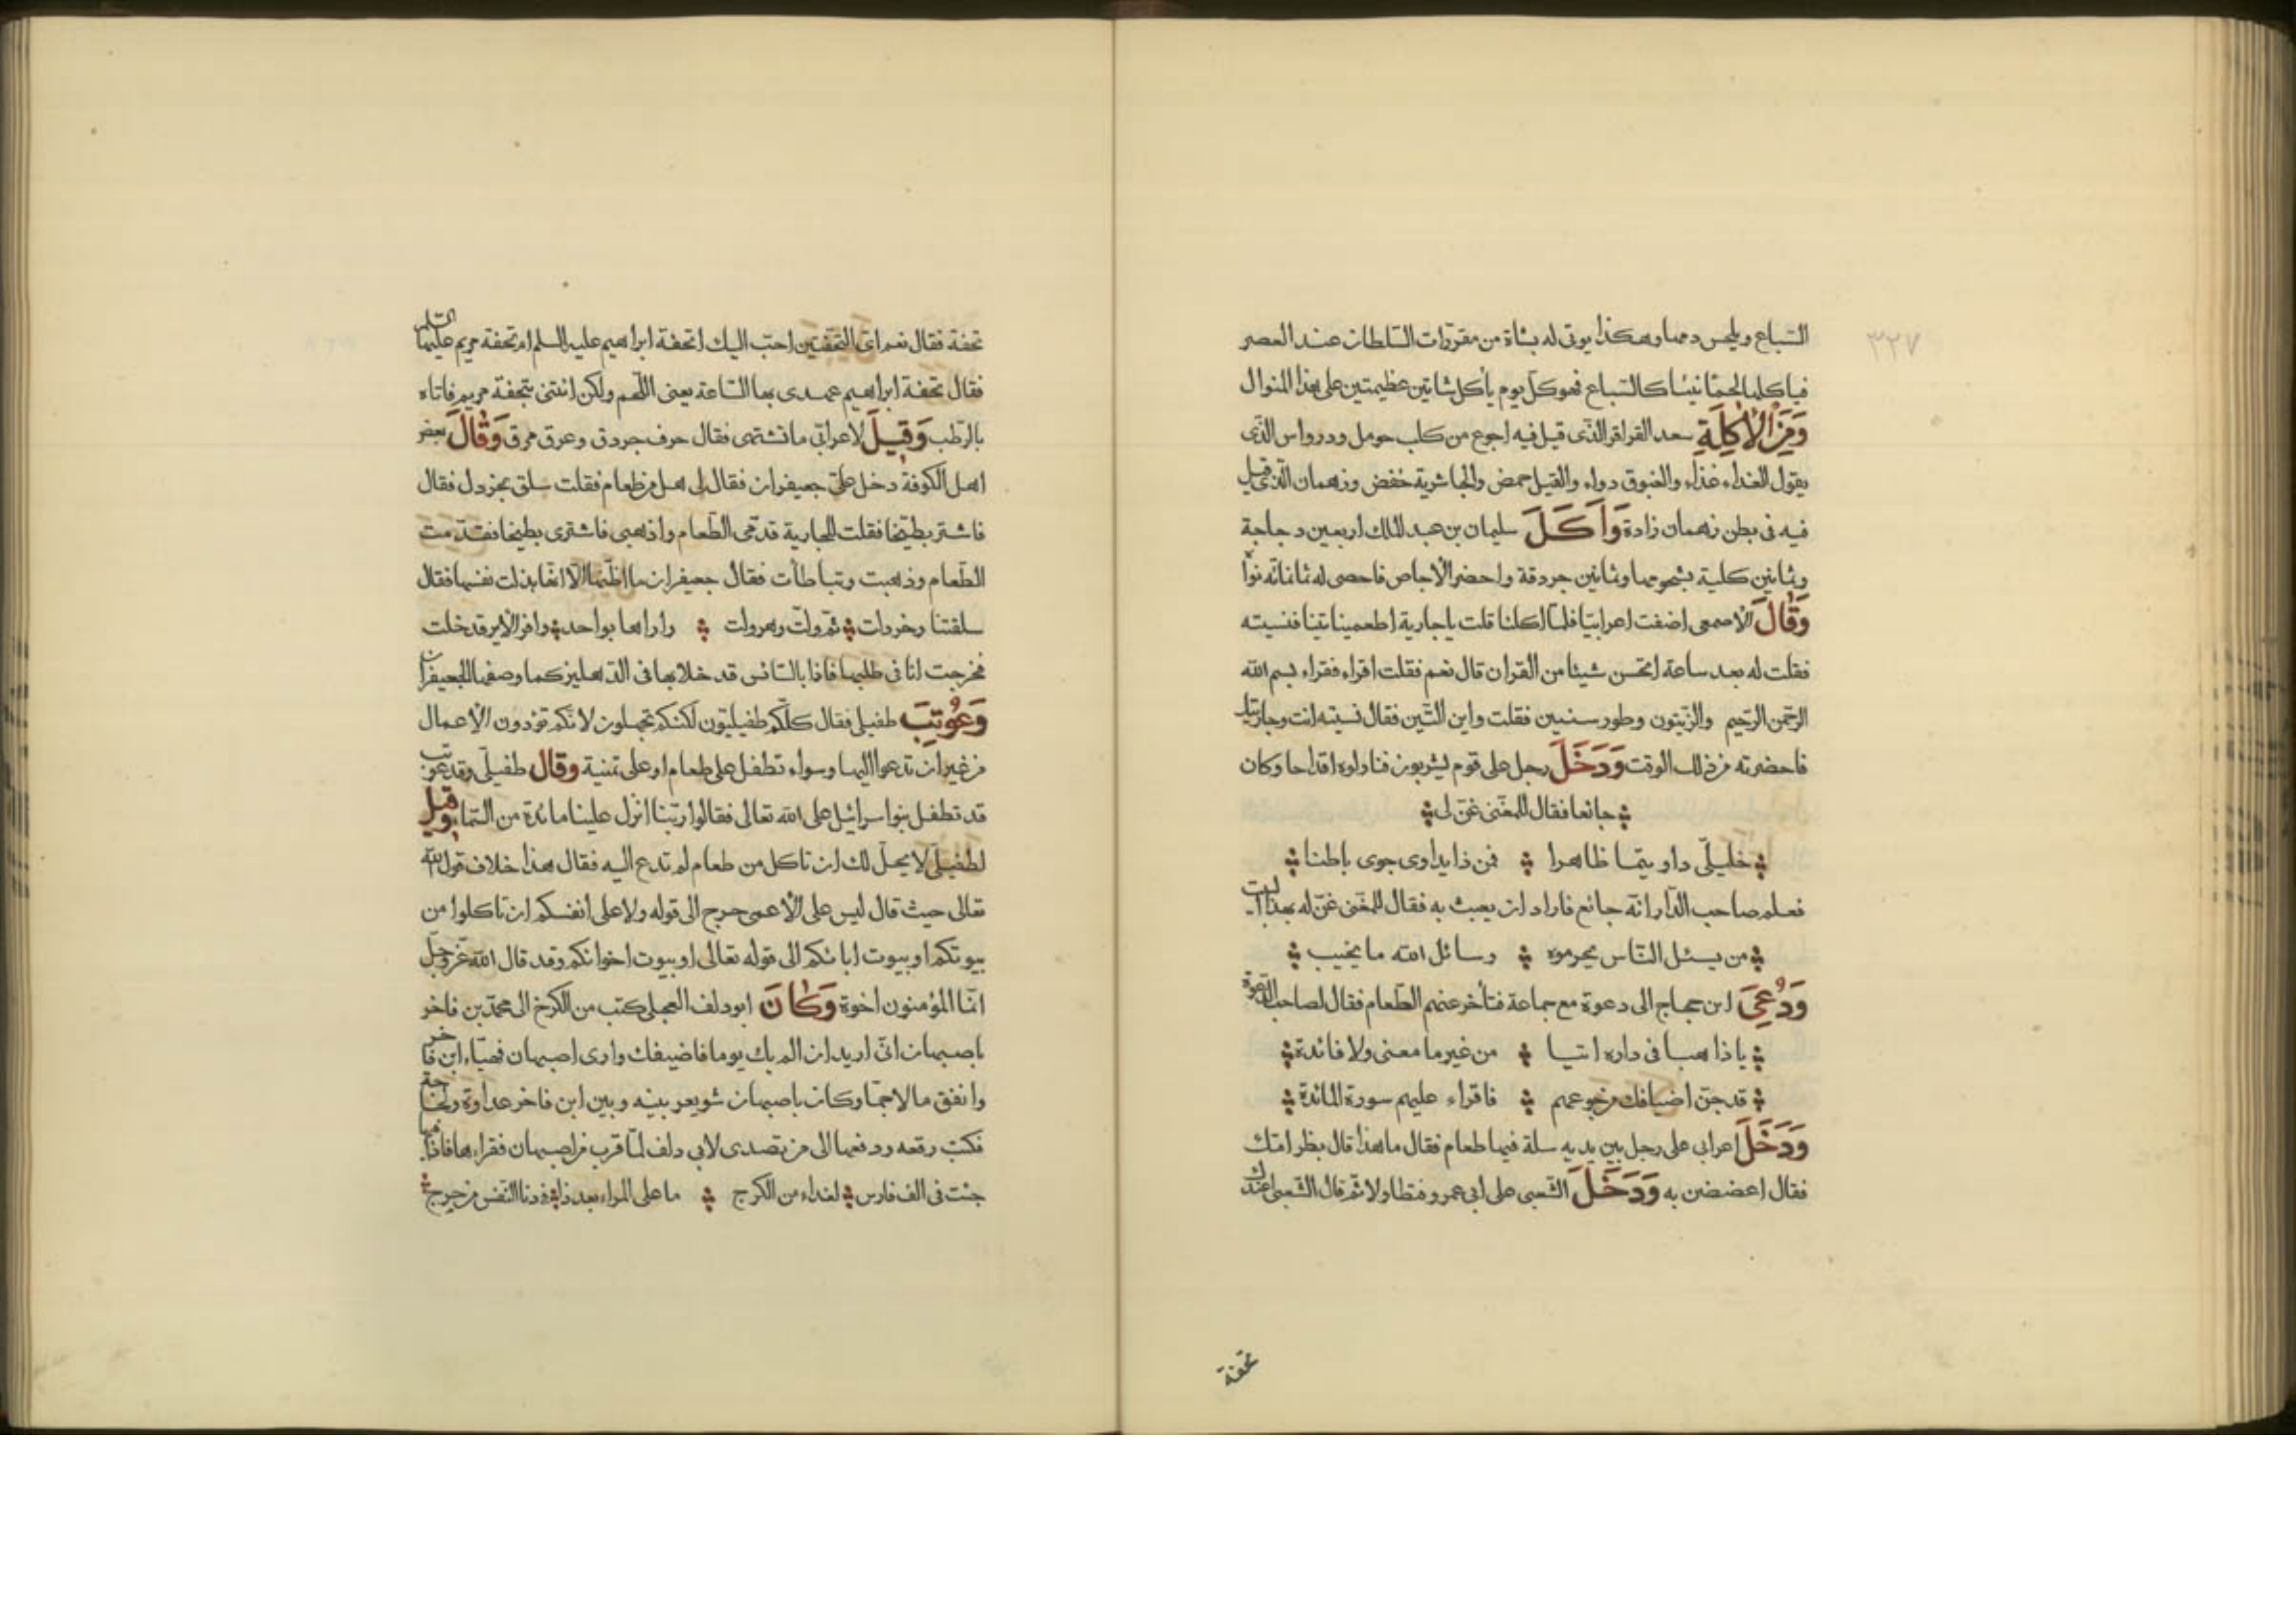 ٣٢٧
السباع ويلحس دمها وهكذا يوتى له بشاة من مقررات السلطان عند العصر
فيأكلها لحمًا نيئا كالسباع فهو كل يوم يأكل شاتين عظيمتين على هذا المنوال
وَمِنَ الأكلةِ سعد القراقر الذى قيل فيه اجوع من كلب حومل ودرواس الذى
يقول الغداء غذاء والغبوق دواء والقيل حمض والجاشرية خفض وزهمان الذى قيل
فيه فى بطن زهمان زادة وَاَكَلَ سليمان بن عبد الملك اربعين دجاجة
وثمانين كلية بشحومها وثمانين جردقة واحضر الأجاص فاحصى له ثمانمائة نواة
وَقَالَ الأصمعى اضفت اعرابيًا فلما اكلنا قلت يا جارية اطعمينا تينا فنسيته
فقلت له بعد ساعة اتحسن شيئا من القران قال نعم فقلت اقراء فقراء بسم الله
الرحمن الرحيم والزيتون وطور سنين فقلت واين التين فقال نسيته انت وجاريتك
فاحضرته من ذلك الوقت وَدَخَلَ رجل على قوم يشربون فناولوه اقداحا وكان
جائعا فقال للمغنى غن لى
خليلى داويتما ظاهرا فمن ذا يداوى جوى باطنا
فعلم صاحب الدار انه جائع فاراد ان يعبث به فقال للمغنى غن له بهذا البيت
من يسئل الناس يحرموه وسائل الله ما يخيب
وَدُعِىَ ابن حجاج الى دعوة مع جماعة فتأخر عنهم الطعام فقال لصاحب الدعوة
يا ذاهبا فى داره اتيا من غير ما معنى ولا فائدة
قد جن اضيافك من جوعهم فاقراء عليهم سورة المائدة
وَدَخَلَ اعرابى على رجل بين يديه سلة فيها طعام فقال ما هذا قال بظر امك
فقال اعضضن به وَدَخَلَ الشعبى على ابى عمرو فتطاولا ثم قال الشعبى اعندك
تحفة
تحفة فقال نعم اى التحفتين احب اليك اتحفة ابراهيم عليه السلم ام تحفة مريم عليها السلم
فقال تحفة ابراهيم عهدى بها الساعة يعنى اللحم ولكن ائتنى بتحفة مريم فاتاه
بالرطب وَقِيلَ لاعرابى ما تشتهى فقال حرف جردق وعرق مرق وَقَالَ بعض
اهل الكوفة دخل على جعيفران فقال لى اهل من طعام فقلت سلق بخردل فقال
فاشتر بطيخا فقلت للجارية قدمى الطعام واذهبى فاشترى بطيخا فقدمت
الطعام وذهبت وتباطأت فقال جعيفران ما اظنها الا انها بذلت نفسها فقال
سلقتنا وخردلت ثم ولت وهرولت واراها بواحد وافر الاير قد خلت
فخرجت انا فى طلبها فاذا بالسائس قد خلا بها فى الدهليز كما وصفها الجعيفران
وَعُوتِبَ طفيلى فقال كلكم طفيليون لكنكم تجهلون لانكم تؤدون الأعمال
من غير ان تدعوا اليها وسواء تطفل على طعام او على تمنية وقال طفيلى وقد عوتب
قد تطفل بنوا سرائيل على الله تعالى فقالوا ربنا انزل علينا مائدة من السماء وقيل
لطفيلى لا يحل لك ان تاكل من طعام لم تدع اليه فقال هذا خلاف قول الله
تعالى حيث قال ليس على الأعمى حرج الى قوله ولا على انفسكم ان تاكلوا من
بيوتكم او بيوت ابائكم الى قوله تعالى او بيوت اخوانكم وقد قال الله عز وجل
انما المؤمنون اخوة وَكَانَ ابو دلف العجلى كتب من الكرخ الى محمد بن فاخر
باصبهان انى اريد ان الم بك يوما فاضيفك وارى اصبهان فهياء ابن فاخر
وانفق مالا جما وكان باصبهان شويعر بينه وبين ابن فاخر عداوة
فكتب رقعه ودفعها الى من تصدى لابى دلف لما قرب من اصبهان فقراءها فاذا فيها
جئت فى الف فارس لغداء من الكرج ما على المراء بعد ذا فى دنا النفس من حرج